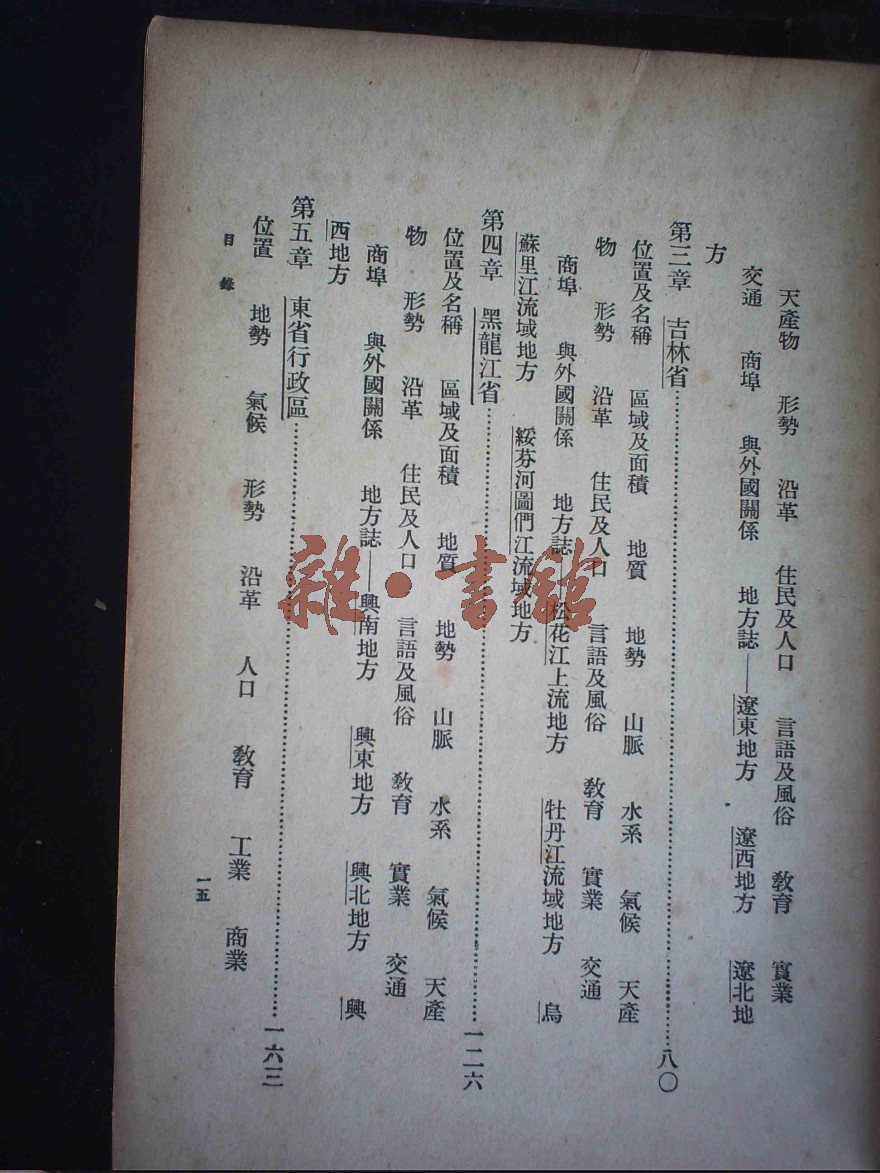 天產物 形勢 沿革 住民及人口 言語及風俗 敎育 實業
交通 商埠 與外國關係 地方誌——遼東地方 遼西地方 遼北地
方
第三章 吉林省……八〇
位置及名稱 區域及面積 地質 地勢 山脈 水系 氣候 天產
物 形勢 沿革 住民及人口 言語及風俗 敎育 實業 交通
商埠 與外國關係 地方誌 松花江上流地方 牡丹江流域地方 烏
蘇里江流域地方 綏芬河圖們江流域地方
第四章 黑龍江省……一二六
位置及名稱 區域及面積 地質 地勢 山脈 水系 氣候 天產
物 形勢 沿革 住民及人口 言語及風俗 敎育 實業 交通
商埠 與外國關係 地方誌——興南地方 興東地方 興北地方 興
西地方
第五章 東省行政區……一六三
位置 地勢 氣候 形勢 沿革 人口 敎育 工業 商業
目錄
一五
雜·書館